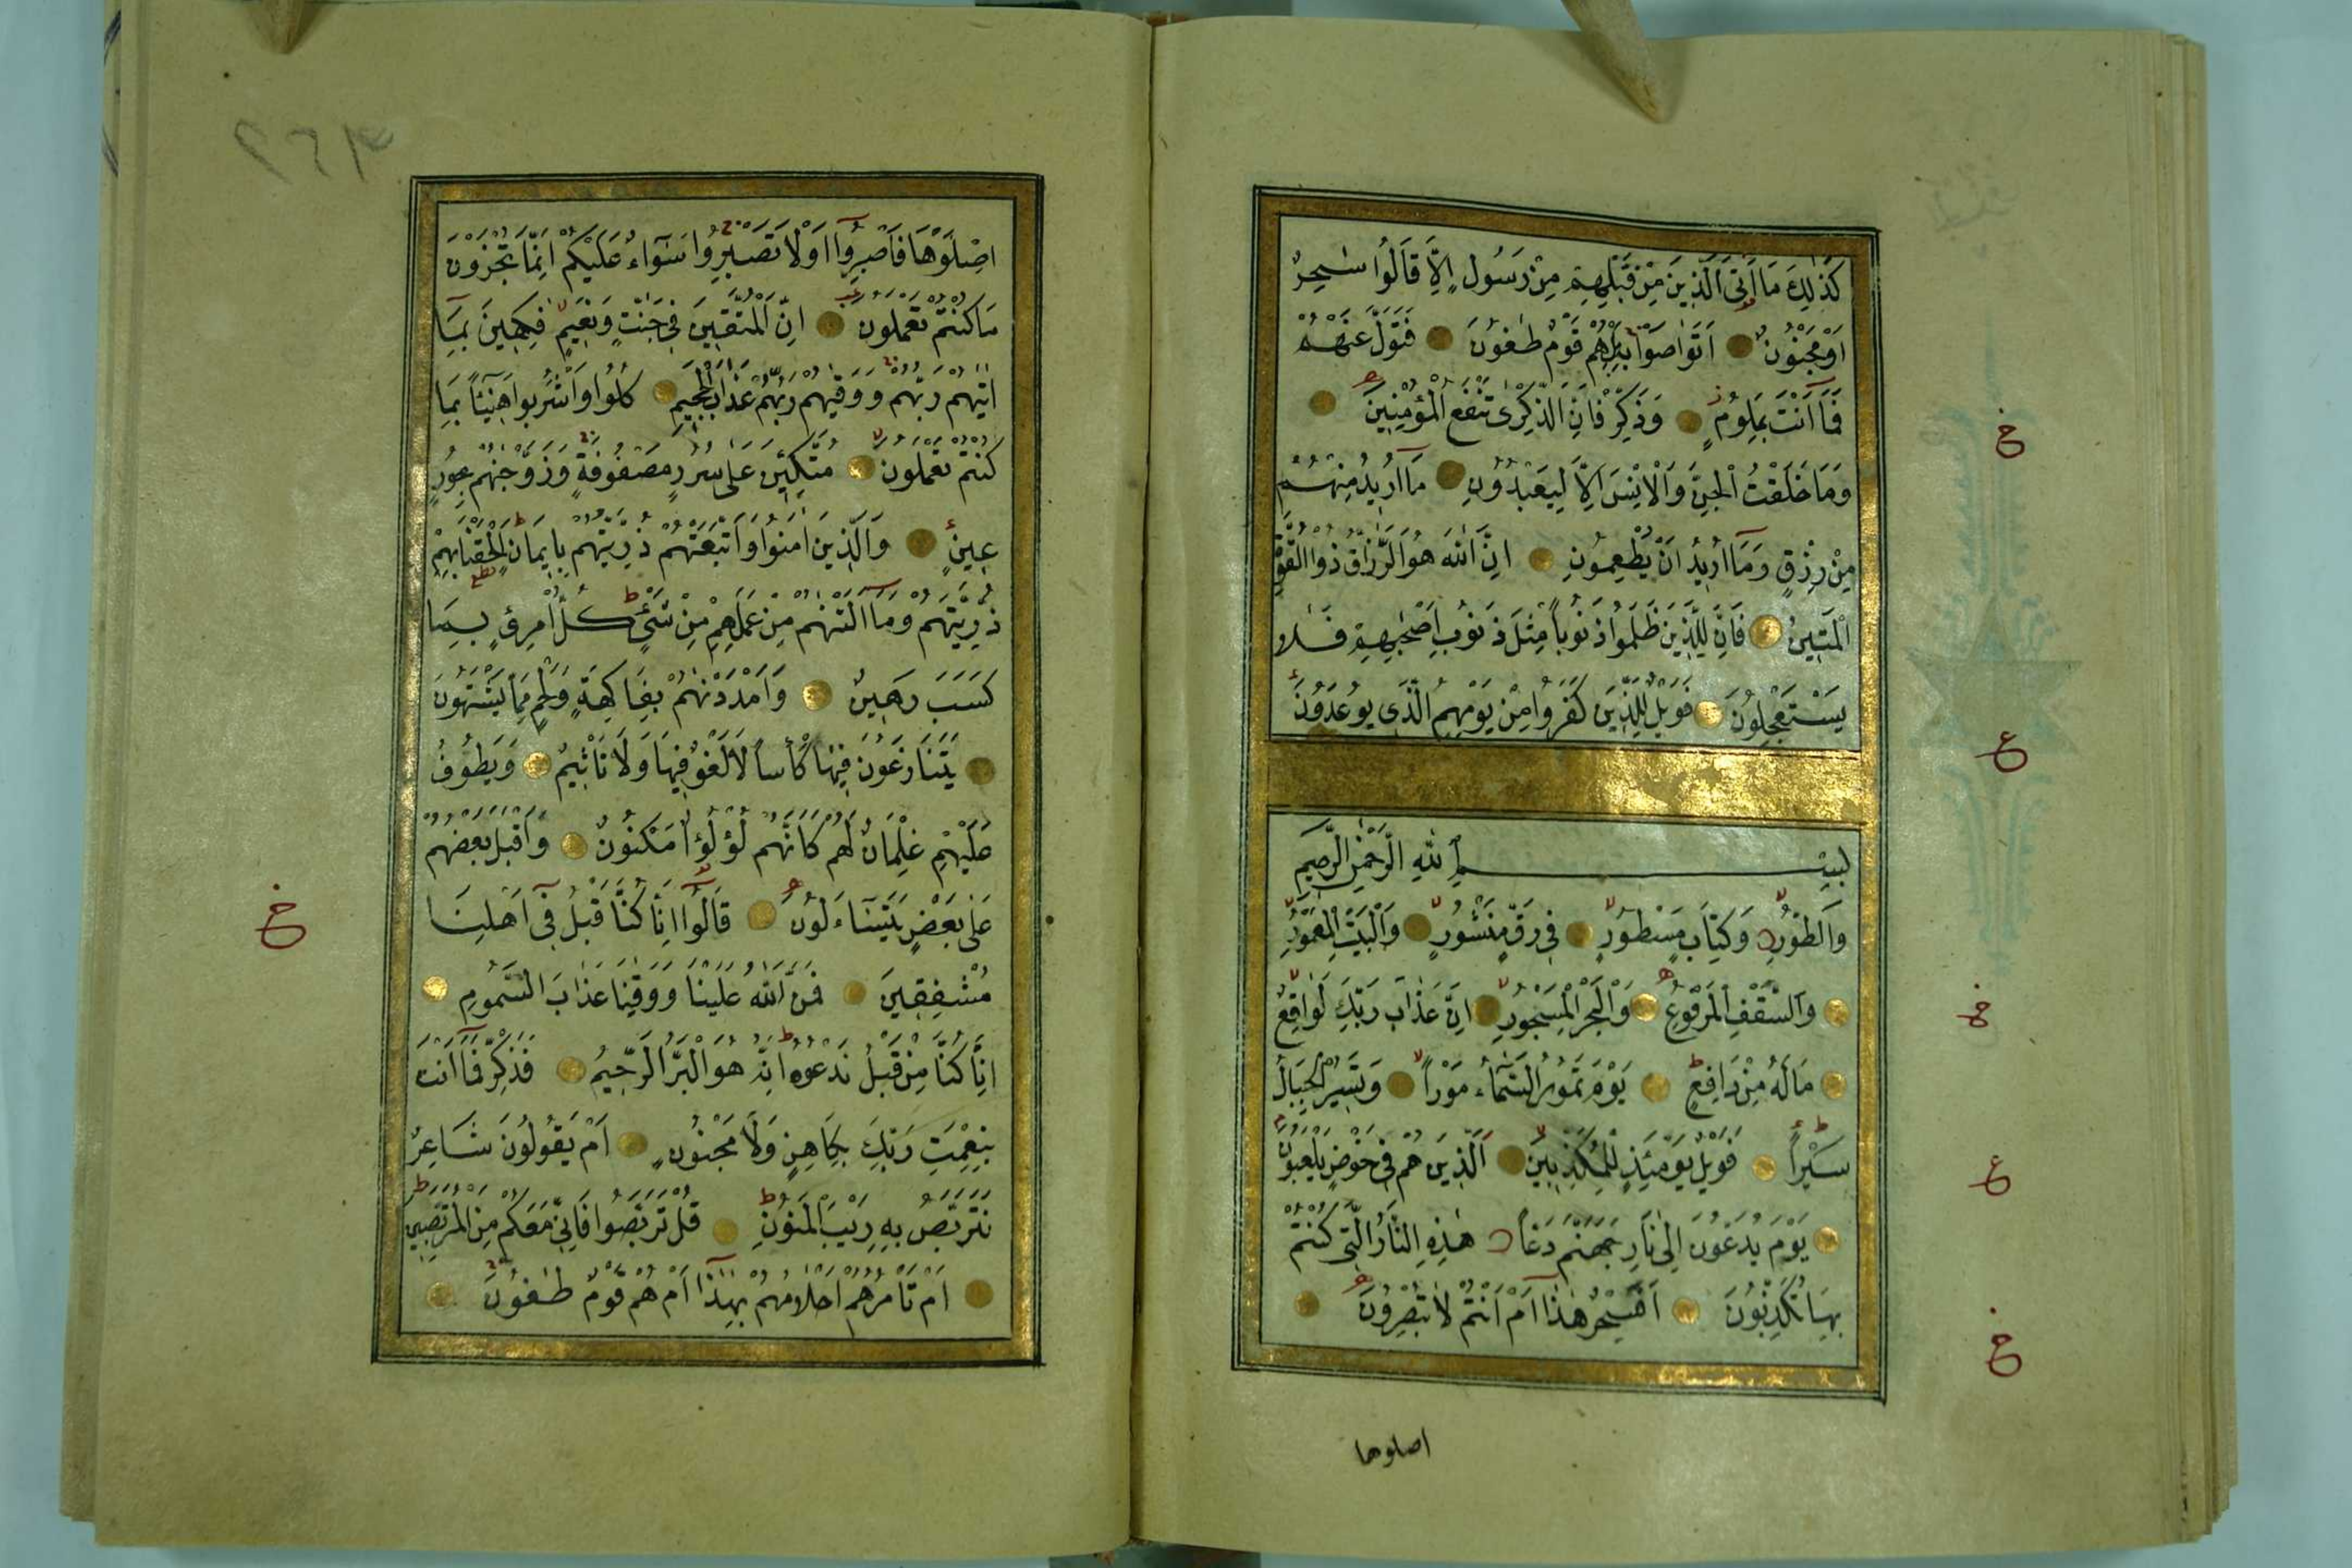 كَذٰلِكَ مَا اَتَى الَّذِينَ مِنْ قَبْلِهِمْ مِنْ رَسُولٍ اِلَّا قَالُوا سَاحِرٌ
اَوْ مَجْنُونٌ اَتَوَاصَوْا بِهِ بَلْ هُمْ قَوْمٌ طَاغُونَ فَتَوَلَّ عَنْهُمْ
فَمَا اَنْتَ بِمَلُومٍ وَذَكِّرْ فَاِنَّ الذِّكْرٰى تَنْفَعُ الْمُؤْمِنِينَ
وَمَا خَلَقْتُ الْجِنَّ وَالْاِنْسَ اِلَّا لِيَعْبُدُونِ مَا اُرِيدُ مِنْهُمْ
مِنْ رِزْقٍ وَمَا اُرِيدُ اَنْ يُطْعِمُونِ اِنَّ اللّٰهَ هُوَ الرَّزَّاقُ ذُو الْقُوَّةِ
الْمَتِينُ فَاِنَّ لِلَّذِينَ ظَلَمُوا ذَنُوبًا مِثْلَ ذَنُوبِ اَصْحٰبِهِمْ فَلَا
يَسْتَعْجِلُونَ فَوَيْلٌ لِلَّذِينَ كَفَرُوا مِنْ يَوْمِهِمُ الَّذِي يُوعَدُونَ
بِسْمِ اللّٰهِ الرَّحْمٰنِ الرَّحِيمِ
وَالطُّورِ وَكِتَابٍ مَسْطُورٍ فِي رَقٍّ مَنْشُورٍ وَالْبَيْتِ الْمَعْمُورِ
وَالسَّقْفِ الْمَرْفُوعِ وَالْبَحْرِ الْمَسْجُورِ اِنَّ عَذَابَ رَبِّكَ لَوَاقِعٌ
مَا لَهُ مِنْ دَافِعٍ يَوْمَ تَمُورُ السَّمَاءُ مَوْرًا وَتَسِيرُ الْجِبَالُ
سَيْرًا فَوَيْلٌ يَوْمَئِذٍ لِلْمُكَذِّبِينَ اَلَّذِينَ هُمْ فِي خَوْضٍ يَلْعَبُونَ
يَوْمَ يُدَعُّونَ اِلٰى نَارِ جَهَنَّمَ دَعًّا هٰذِهِ النَّارُ الَّتِي كُنْتُمْ
بِهَا تُكَذِّبُونَ اَفَسِحْرٌ هٰذَا اَمْ اَنْتُمْ لَا تُبْصِرُونَ
اصلوها
اِصْلَوْهَا فَاصْبِرُوا اَوْ لَا تَصْبِرُوا سَوَاءٌ عَلَيْكُمْ اِنَّمَا تُجْزَوْنَ
مَا كُنْتُمْ تَعْمَلُونَ اِنَّ الْمُتَّقِينَ فِي جَنّٰتٍ وَنَعِيمٍ فٰكِهِينَ بِمَا
اٰتٰيهُمْ رَبُّهُمْ وَوَقٰيهُمْ رَبُّهُمْ عَذَابَ الْجَحِيمِ كُلُوا وَاشْرَبُوا هَنِيئًا بِمَا
كُنْتُمْ تَعْمَلُونَ مُتَّكِئِينَ عَلٰى سُرُرٍ مَصْفُوفَةٍ وَزَوَّجْنٰهُمْ بِحُورٍ
عِينٍ وَالَّذِينَ اٰمَنُوا وَاتَّبَعَتْهُمْ ذُرِّيَّتُهُمْ بِاِيمَانٍ اَلْحَقْنَا بِهِمْ
ذُرِّيَّتَهُمْ وَمَا اَلَتْنٰهُمْ مِنْ عَمَلِهِمْ مِنْ شَيْءٍ كُلُّ امْرِئٍ بِمَا
كَسَبَ رَهِينٌ وَاَمْدَدْنٰهُمْ بِفَاكِهَةٍ وَلَحْمٍ مِمَّا يَشْتَهُونَ
يَتَنَازَعُونَ فِيهَا كَأْسًا لَا لَغْوٌ فِيهَا وَلَا تَأْثِيمٌ وَيَطُوفُ
عَلَيْهِمْ غِلْمَانٌ لَهُمْ كَاَنَّهُمْ لُؤْلُؤٌ مَكْنُونٌ وَاَقْبَلَ بَعْضُهُمْ
عَلٰى بَعْضٍ يَتَسَاءَلُونَ قَالُوا اِنَّا كُنَّا قَبْلُ فِي اَهْلِنَا
مُشْفِقِينَ فَمَنَّ اللّٰهُ عَلَيْنَا وَوَقٰينَا عَذَابَ السَّمُومِ
اِنَّا كُنَّا مِنْ قَبْلُ نَدْعُوهُ اِنَّهُ هُوَ الْبَرُّ الرَّحِيمُ فَذَكِّرْ فَمَا اَنْتَ
بِنِعْمَتِ رَبِّكَ بِكَاهِنٍ وَلَا مَجْنُونٍ اَمْ يَقُولُونَ شَاعِرٌ
نَتَرَبَّصُ بِهِ رَيْبَ الْمَنُونِ قُلْ تَرَبَّصُوا فَاِنِّي مَعَكُمْ مِنَ الْمُتَرَبِّصِينَ
اَمْ تَأْمُرُهُمْ اَحْلَامُهُمْ بِهٰذَا اَمْ هُمْ قَوْمٌ طَاغُونَ